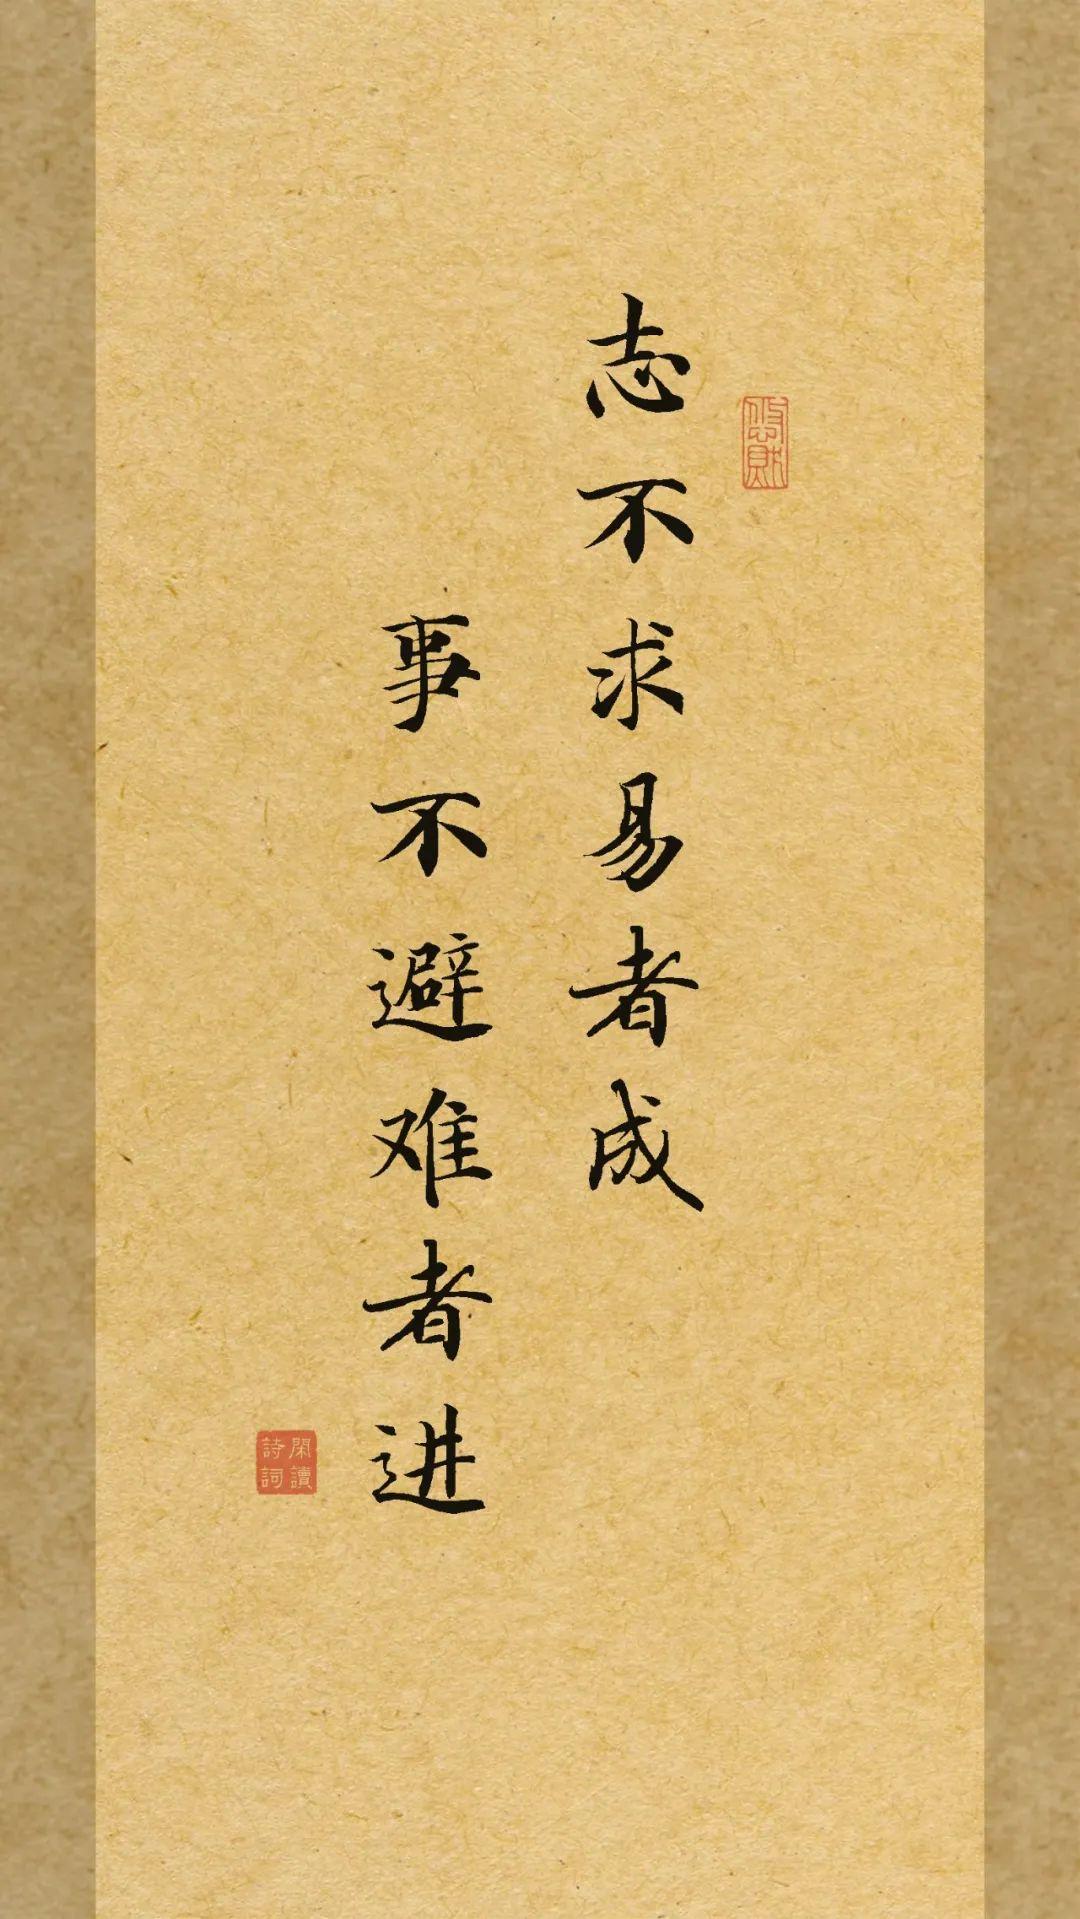 志不求易者成
事不避难者进
閑讀
詩詞